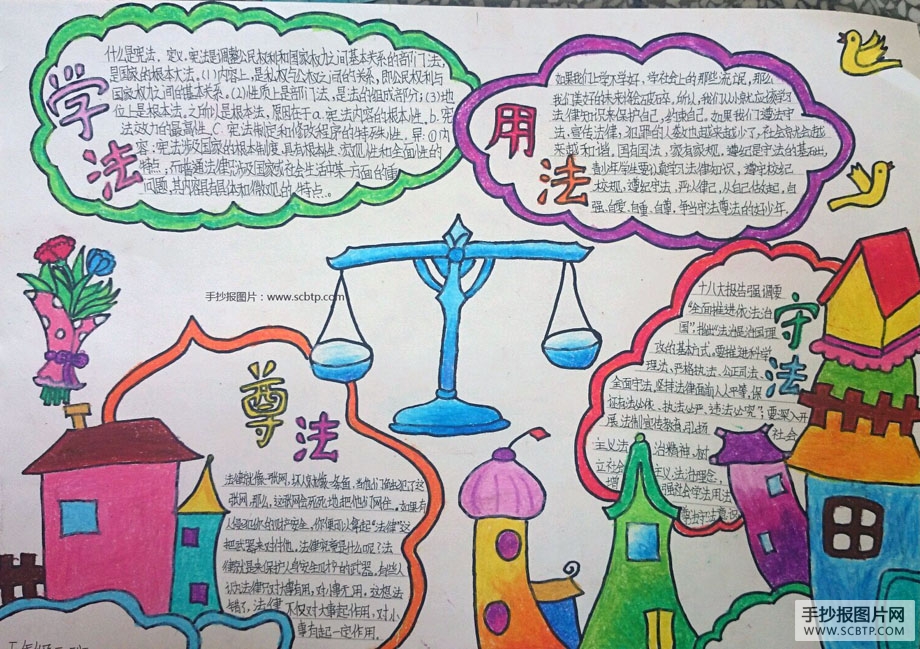 学法
什么是宪法，定义，宪法是调整公民权利和国家权力之间基本关系的部门法，
是国家的根本大法。(1)内容上，是私权与公权之间的关系，即公民权利与
国家权力之间的基本关系。(2)性质上是部门法，是法的组成部分；(3)地
位上是根本法。之所以是根本法，原因在于a.宪法内容的根本性，b.宪
法效力的最高性，C.宪法制定和修改程序的特殊性。异：①内
容：宪法涉及国家的根本制度，具有根本性、宏观性和全面性的
特点；而普通法律只涉及国家或社会生活中某一方面的
问题，其内容具有具体和微观的特点…。
用法
如果我们上学不学好，学社会上的那些流氓，那么
我们美好的未来将会破碎，所以，我们从小就应该学习
法律知识来保护自己，约束自己。如果我们遵法守
法，宣传法律，犯罪的人数也越来越少了，社会就会越
来越和谐。国有国法，家有家规，遵纪是守法的基础，
青少年学生要认真学习法律知识，遵守校纪
校规，遵纪守法，严以律己，从自己做起，自
强、自爱、自重、自尊、争当守法尊法的好少年。
手抄报图片：www.scbtp.com
守法
十八大报告强调要
“全面推进依法治
国”，指出“法治是治国理
政的基本方式，要推进科学
严格执法、公正司法、
全面守法，坚持法律面前人人平等，保
证有法必依、执法必严、违法必究”；要深入开
展法制宣传教育，弘扬社会
主义法治精神，树
立社会主义法治理念，
增强社会学法
尊法
法律就像一张网，坏人就像一条鱼，当他们
张网，那么，这张网会死死地把他们网住。如果有
人侵犯你的财产安全，你便可以拿起“法律”这
把武器来对付他。法律究竟是什么呢？法
律就是来保护人身安全财产的武器，有些人
认为法律只对大事有用，对小事无用，这想法
错了，法律不仅对大事起作用，对小
事有起一定作用。
手抄报图片网
WWW.SCBTP.COM